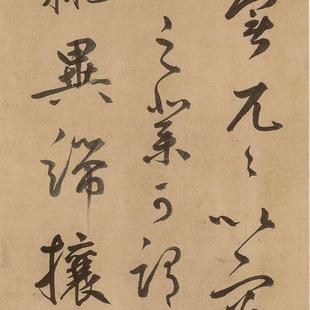 兀々以窮
之業可謂
排異端攘